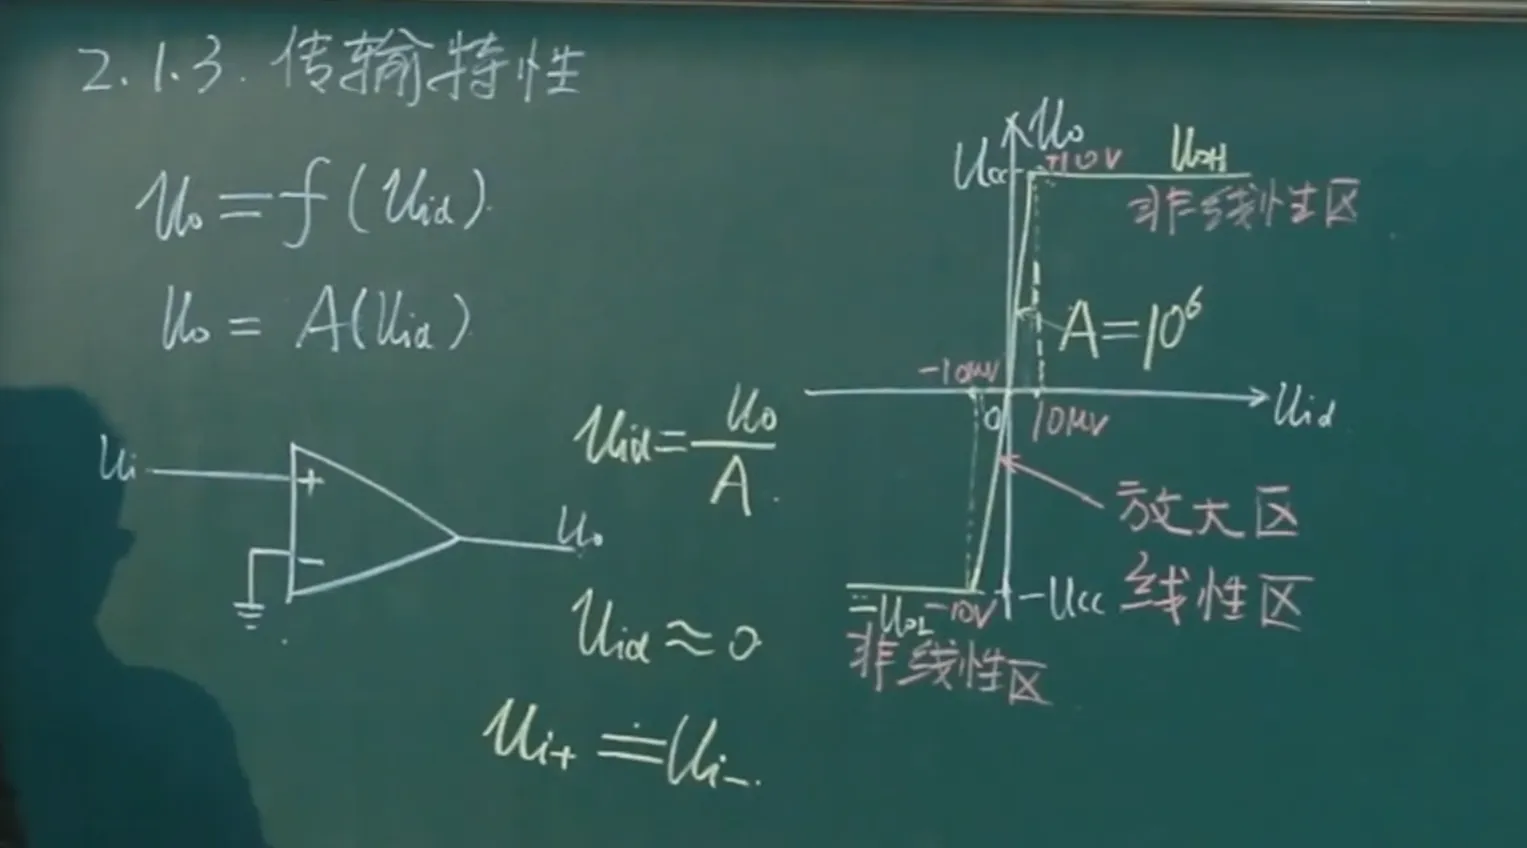 2.1.3. 传输特性
u₀ = f(u_id)
u₀ = A(u_id)
u_i
+
−
u₀
u_id = u₀/A.
u_id ≈ 0
u_i+ ≐ u_i−.
u₀
U_cc
+10V
U_OH
非线性区
A=10⁶
-10μV
0
10μV
u_id
放大区
线性区
-U_cc
-10V
-U_OL
非线性区